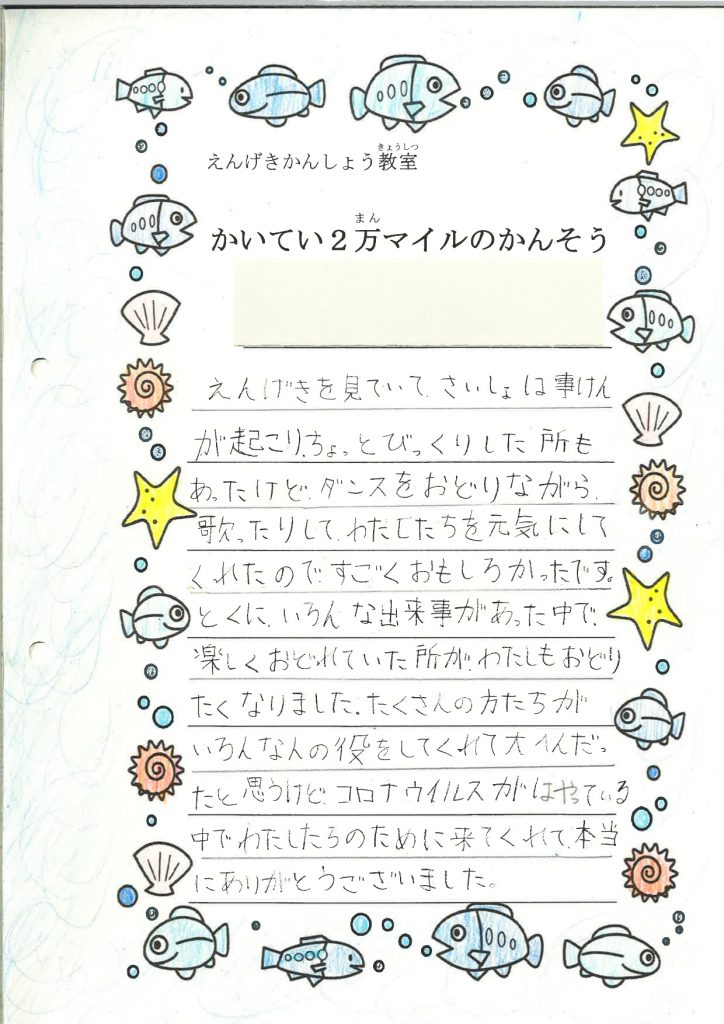 えんげきかんしょう教室
きょうしつ
かいてい２万マイルのかんそう
まん
えんげきを見ていて、さいしょは事けん
が起こり、ちょっとびっくりした所も
あったけど、ダンスをおどりながら、
歌ったりして、わたしたちを元気にして
くれたので、すごくおもしろかったです。
とくに、いろんな出来事があった中で、
楽しくおどれていた所が、わたしもおどり
たくなりました。たくさんの方たちが
いろんな人の役をしてくれて大へんだっ
たと思うけど、コロナウイルスがはやっている
中でわたしたちのために来てくれて、本当
にありがとうございました。